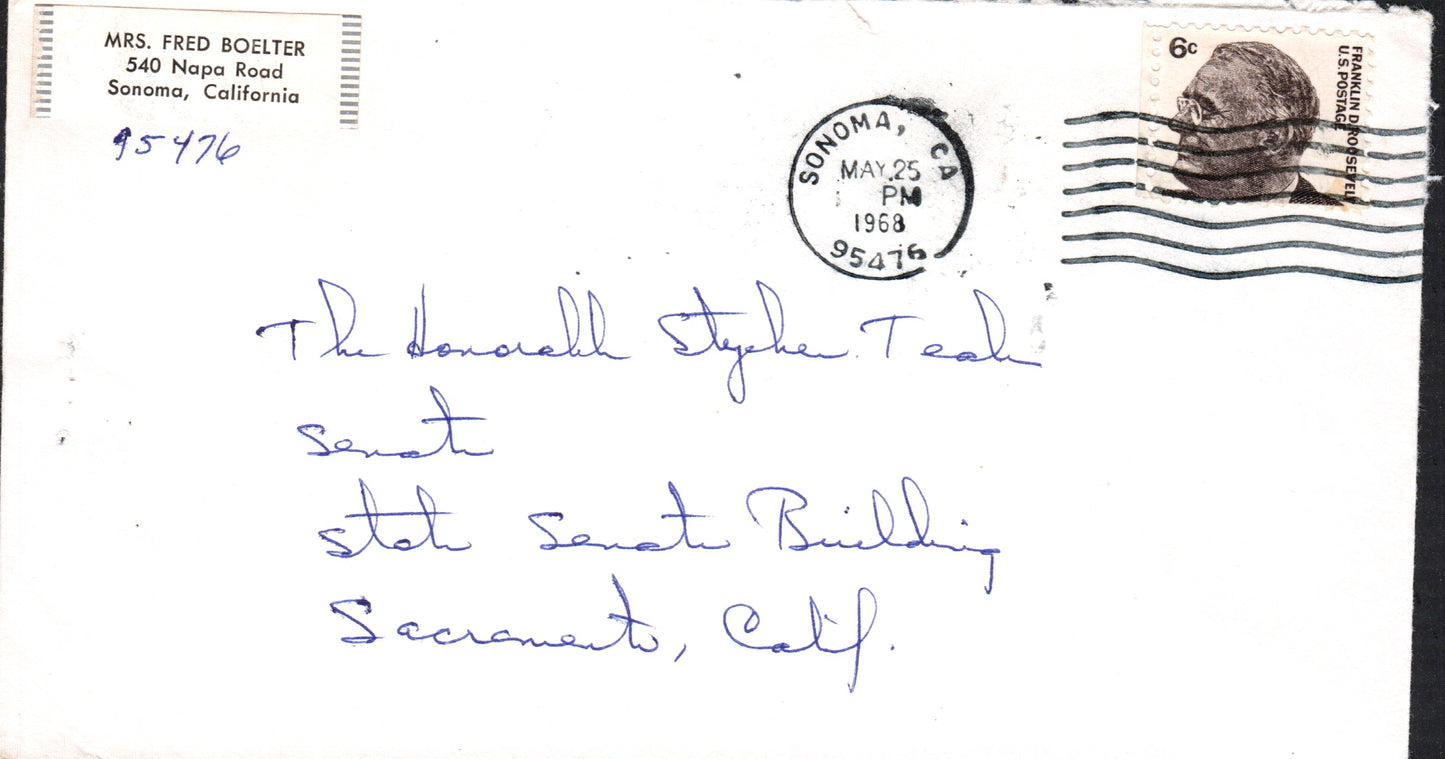 MRS. FRED BOELTER
540 Napa Road
Sonoma, California
95476
SONOMA, CA
MAY 25
PM
1968
95476
6c
FRANKLIN D. ROOSEVELT
U.S. POSTAGE
The Honorable Stephen Teale
Senate
State Senate Building
Sacramento, Calif.